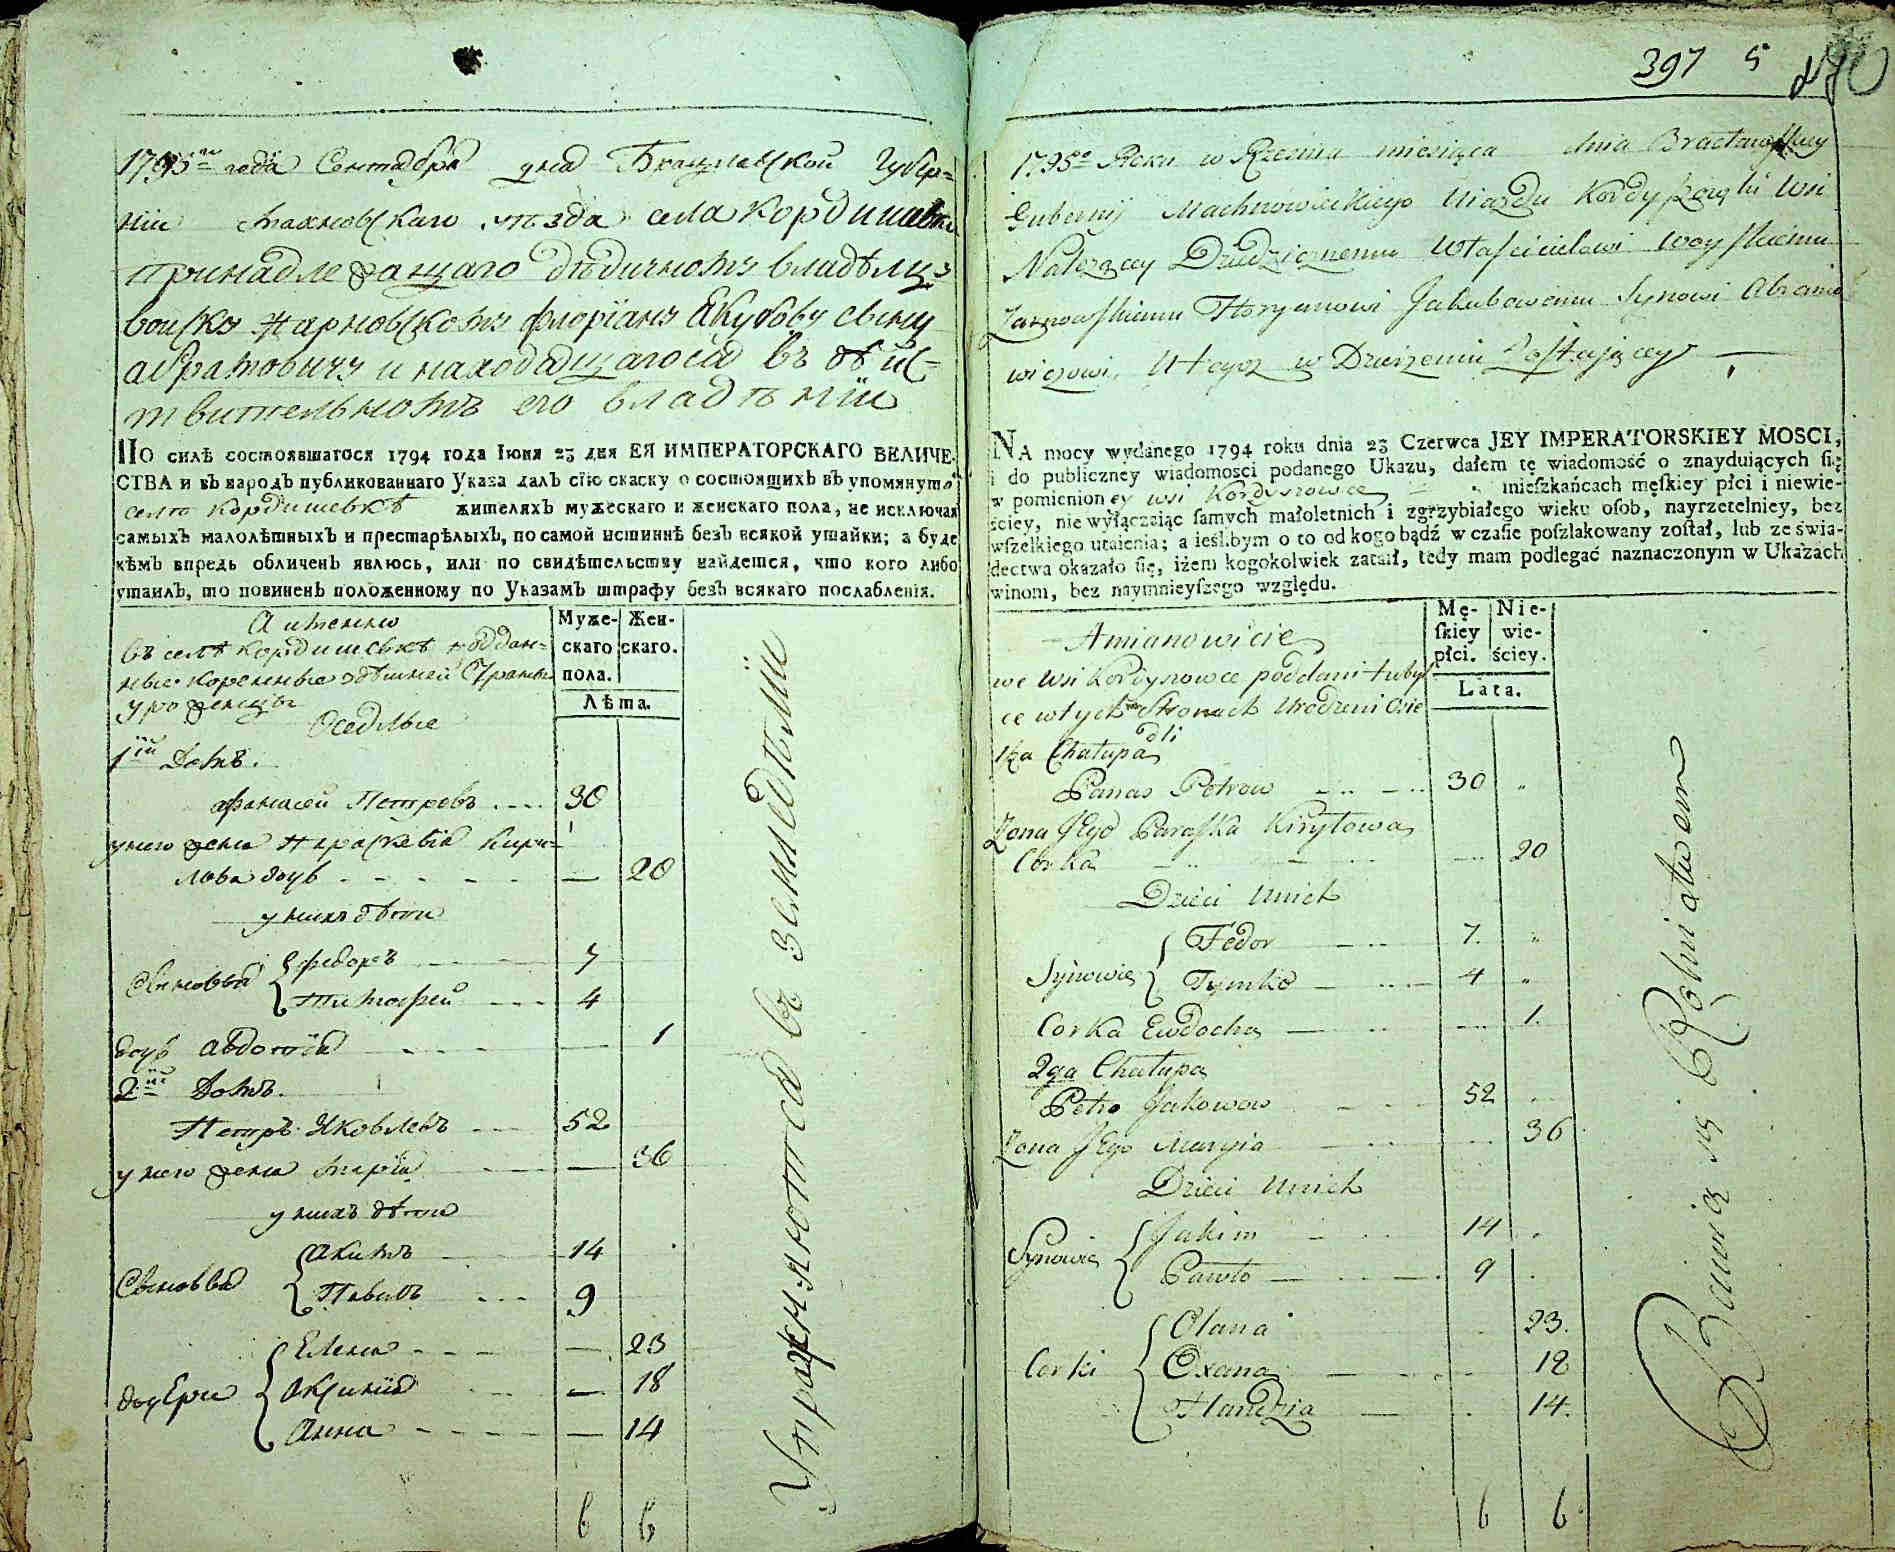 1795го года Сентября дня Брацлавской Губер=
нїи Махновскаго уѣзда села Кордишевки
принадлежащаго дѣдичномъ владѣлц.
войско Жарновскомъ Флорїанъ Якубову сыну
абрамовичъ и находящагося въ дѣйс-
твительномъ его владѣнїи
ПО силѣ состоявшагося 1794 года Іюня 23 дня ЕЯ ИМПЕРАТОРСКАГО ВЕЛИЧЕ-
СТВА и въ народъ публикованнаго Указа далъ сїю скаску о состоящихъ въ упомянутой
селѣ Кордишевкѣ жителяхъ мужескаго и женскаго пола, не исключая
самыхъ малолѣтныхъ и престарѣлыхъ, по самой истиннѣ безъ всякой утайки; а буде
кѣмъ впредь обличенъ явлюсь, или по свидѣтельству найдется, что кого либо
утаилъ, то повиненъ положенному по Указамъ штрафу безъ всякаго послабленія.
Муже-
скаго
пола.
Жен-
скаго.
Лѣта.
А именно
въ селѣ Кордишевкѣ поддан-
ные коренные здѣшней Страны
уроженцы
Оседлые
1їй Домъ.
Афанасей Петровъ 30
у него жена Параскевїя Кири=
лова дочь 20
у нихъ дѣти
Сыновья
Федоръ 7
Тимофей 4
дочь Авдотїя 1
2ий Домъ.
Петръ Яковлевъ 52
у него жена Марїя 36
у нихъ дѣти
Сыновья
Акимъ 14
Павелъ 9
дочери
Елена 23
Оксинїя 18
Анна 14
6 6
Упражняются въ земледѣлїи
397 5
1795go Roku w Rzeniu miesiąca dnia Bracławskiey
Gubernij Machnowieckiego Uiazdu Kordyszowki wsi
Należącey Dziedzicznemu Właścicielowi Woyskiemu
Żarnowskiemu Floryanowi Jakubowemu Synowi Abramo
wiczowi, Utegoż w Dzierżeniu Zostaiącey
NA mocy wydanego 1794 roku dnia 23 Czerwca JEY IMPERATORSKIEY MOSCI,
i do publiczney wiadomosci podanego Ukazu, dałem tę wiadomość o znayduiących się
w pomienioney wsi Kordyszowce mieſzkańcach męſkiey płci i niewie-
ściey, nie wyłączaiąc ſamych małoletnich i zgrzybiałego wieku oſob, nayrzetelniey, bez
wſzelkiego utaienia; a ieślibym o to od kogo bądź w czaſie poſzlakowany zoſtał, lub ze świa-
dectwa okazało ſię, iżem kogokolwiek zataił, tedy mam podlegać naznaczonym w Ukazach
winom, bez naymnieyſzego względu.
Mę-
ſkiey
płci.
Nie-
wie-
ściey.
Lata.
Amianowicie
we wsi Kordyszowce poddani tuby
ce wtych Stronach Urodzeni Osie
dli
1sza Chałupa
Panas Petrow 30
Żona Jego Paraska Kiryłowa
Corka 20
Dzieci Unich
Synowie
Fedor 7.
Tymko 4
Corka Ewdocha 1.
2ga Chałupa
Petro Jakowow 52
Żona Jego Maryia 36
Dzieci Unich
Synowie
Jakim 14
Pawło 9
Corki
Olana 23.
Oxana 18
Handzia 14.
6 6
Bawią się Rolnictwem